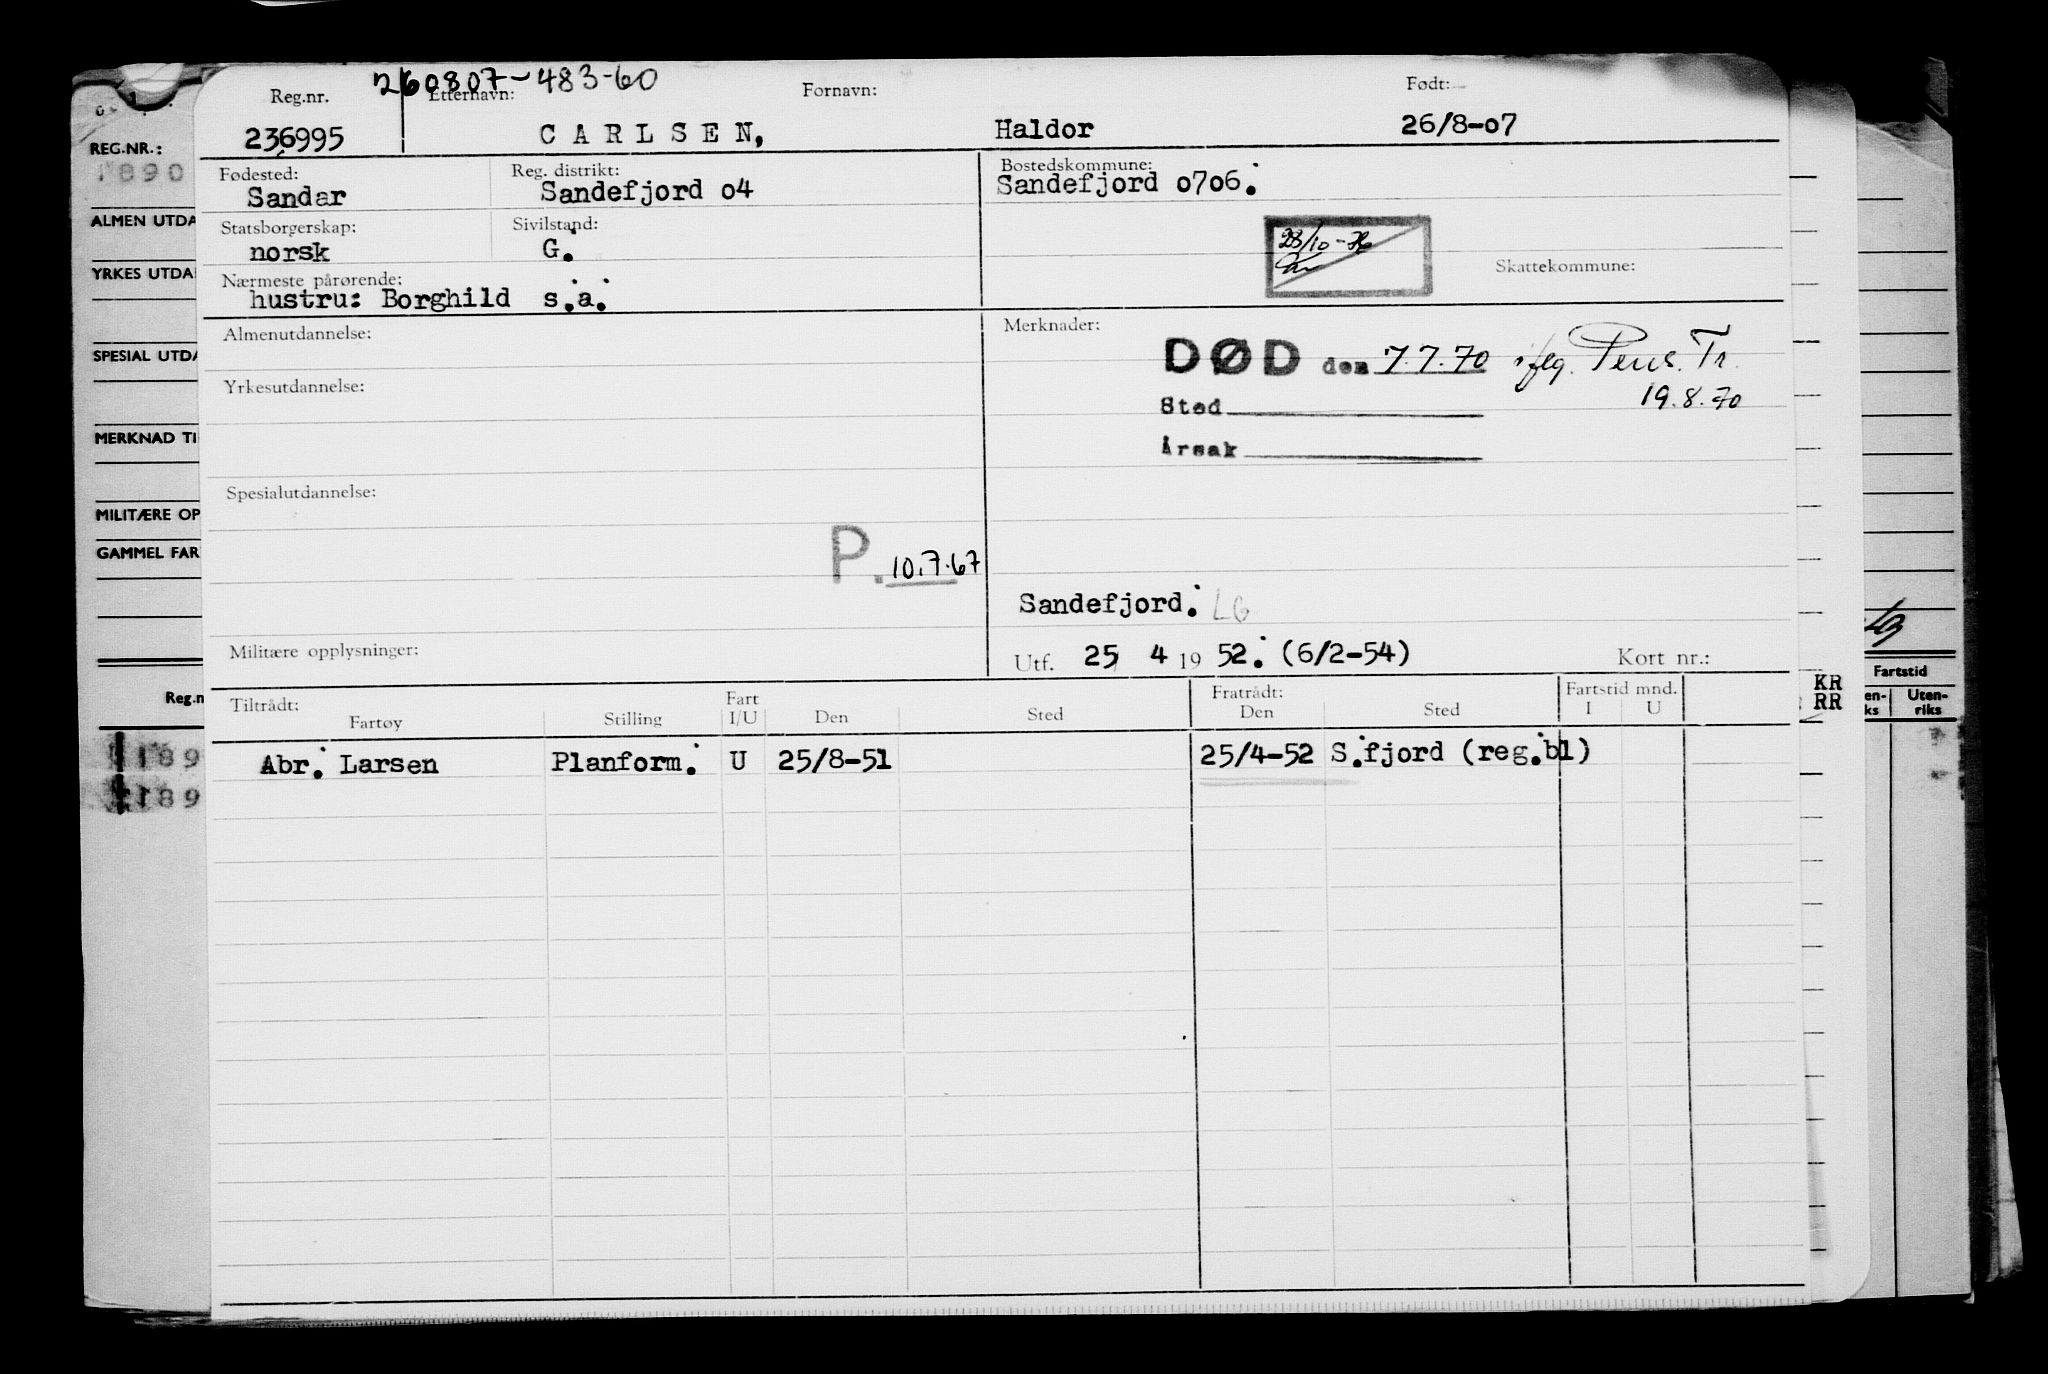 260807-483-60
Reg.nr. Etternavn: Fornavn: Født:
236995 CARLSEN, Haldor 26/8-07
Fødested: Reg. distrikt: Bostedskommune:
Sandar Sandefjord 04 Sandefjord 0706.
Statsborgerskap: Sivilstand:
norsk G.
28/10-76
Skattekommune:
Nærmeste pårørende:
hustru: Borghild s.a.
Almenutdannelse: Merknader:
DØD den 7.7.70 iflg. Pens. Tr.
19.8.70
Yrkesutdannelse:
Sted
Årsak
Spesialutdannelse:
P. 10.7.67
Sandefjord. LG
Militære opplysninger:
Utf. 25 4 1952. (6/2-54) Kort nr.:
Tiltrådt: Fart Fratrådt: Fartstid mnd.
Fartøy Stilling I/U Den Sted Den Sted I U
Abr. Larsen Planform. U 25/8-51 25/4-52 S.fjord (reg.bl)
REG.NR.:
1890
ALMEN UTDA
YRKES UTDA
SPESIAL UTDA
MERKNAD TI
MILITÆRE OP
GAMMEL FAR
Reg.n
189
189
KR
RR
Fartstid
en-ks Uten-riks